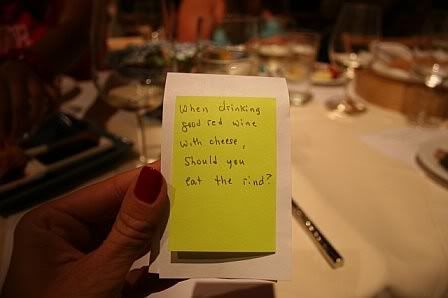 When drinking
good red wine
with cheese,
Should you
eat the rind?